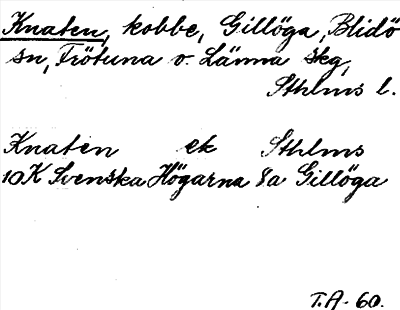 Knaten, kobbe, Gillöga, Blidö
sn, Frötuna o. Länna skg,
Sthlms l.
Knaten ek Sthlms
10K Svenska Högarna 8a Gillöga
T.A. 60.